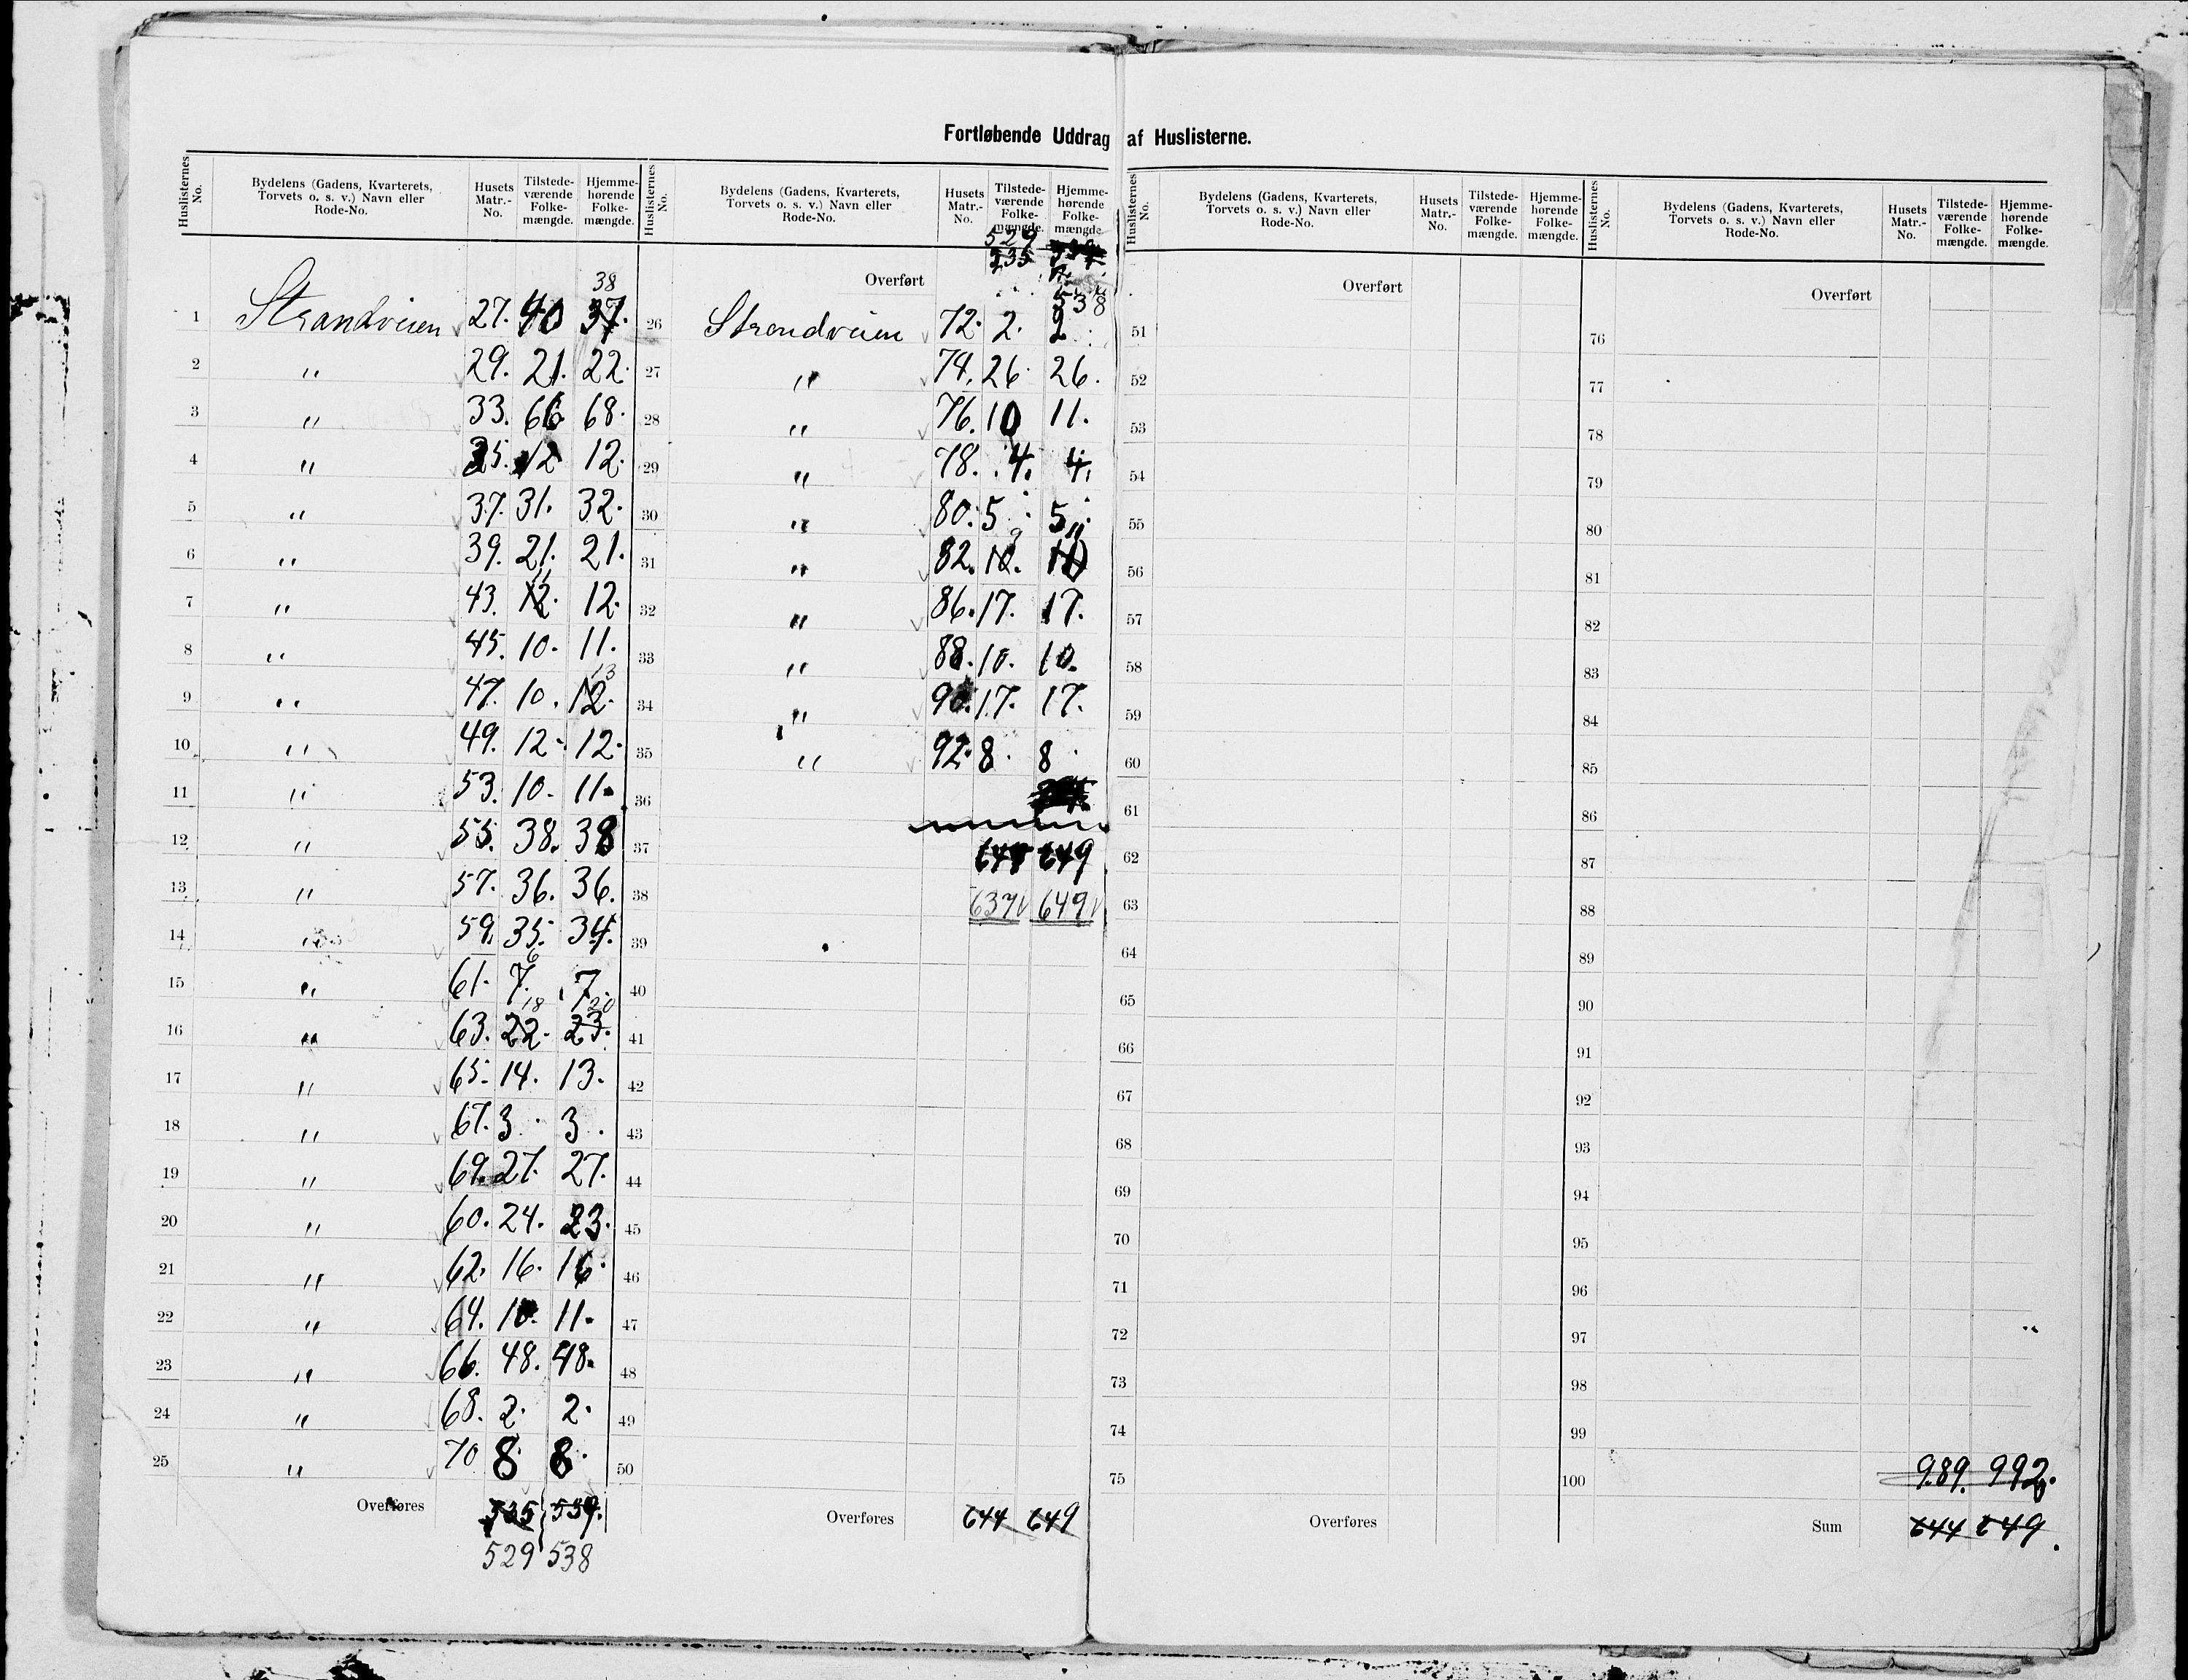 Fortløbende Uddrag af Huslisterne.
Huslisternes No. Bydelens (Gadens, Kvarterets, Torvets o. s. v.) Navn eller Rode-No. Husets Matr.-No. Tilstedeværende Folkemængde. Hjemmehørende Folkemængde.
38
1 Strandveien 27. 40 37.
2 " 29. 21. 22.
3 " 33. 66 68.
4 " 35. 12 12.
5 " 37. 31. 32.
6 " 39. 21. 21.
11
7 " 43. 12. 12.
8 " 45. 10. 11.
13
9 " 47. 10. 12.
10 " 49. 12. 12.
11 " 53. 10. 11.
12 " 55. 38. 38
13 " 57. 36. 36.
14 " 59. 35. 34.
6
15 " 61. 7. 7.
18 20
16 " 63. 22. 23.
17 " 65. 14. 13.
18 " 67. 3. 3.
19 " 69. 27. 27.
20 " 60. 24. 23.
21 " 62. 16. 16.
22 " 64. 10. 11.
23 " 66. 48. 48.
24 " 68. 2. 2.
25 " 70 8. 8.
Overføres 535 539.
529 538
Huslisternes No. Bydelens (Gadens, Kvarterets, Torvets o. s. v.) Navn eller Rode-No. Husets Matr.-No. Tilstedeværende Folkemængde. Hjemmehørende Folkemængde
529
535
Overført
538
26 Strandveien 72. 2. 2
27 " 74. 26. 26.
28 " 76. 10 11.
29 " 78. 4. 4.
30 " 80. 5. 5.
9 11
31 " 82. 10. 10
32 " 86. 17. 17.
33 " 88. 10. 10.
34 " 90. 17. 17.
35 " 92. 8. 8.
36
37 644 649
38 637 649
39
40
41
42
43
44
45
46
47
48
49
50
Overføres 644 649
Huslisternes No. Bydelens (Gadens, Kvarterets, Torvets o. s. v.) Navn eller Rode-No. Husets Matr.-No. Tilstedeværende Folkemængde. Hjemmehørende Folkemængde.
Overført
51
52
53
54
55
56
57
58
59
60
61
62
63
64
65
66
67
68
69
70
71
72
73
74
75
Overføres
Huslisternes No. Bydelens (Gadens, Kvarterets, Torvets o. s. v.) Navn eller Rode-No. Husets Matr.-No. Tilstedeværende Folkemængde. Hjemmehørende Folkemængde.
Overført
76
77
78
79
80
81
82
83
84
85
86
87
88
89
90
91
92
93
94
95
96
97
98
99
100 989. 992.
Sum 644 649.